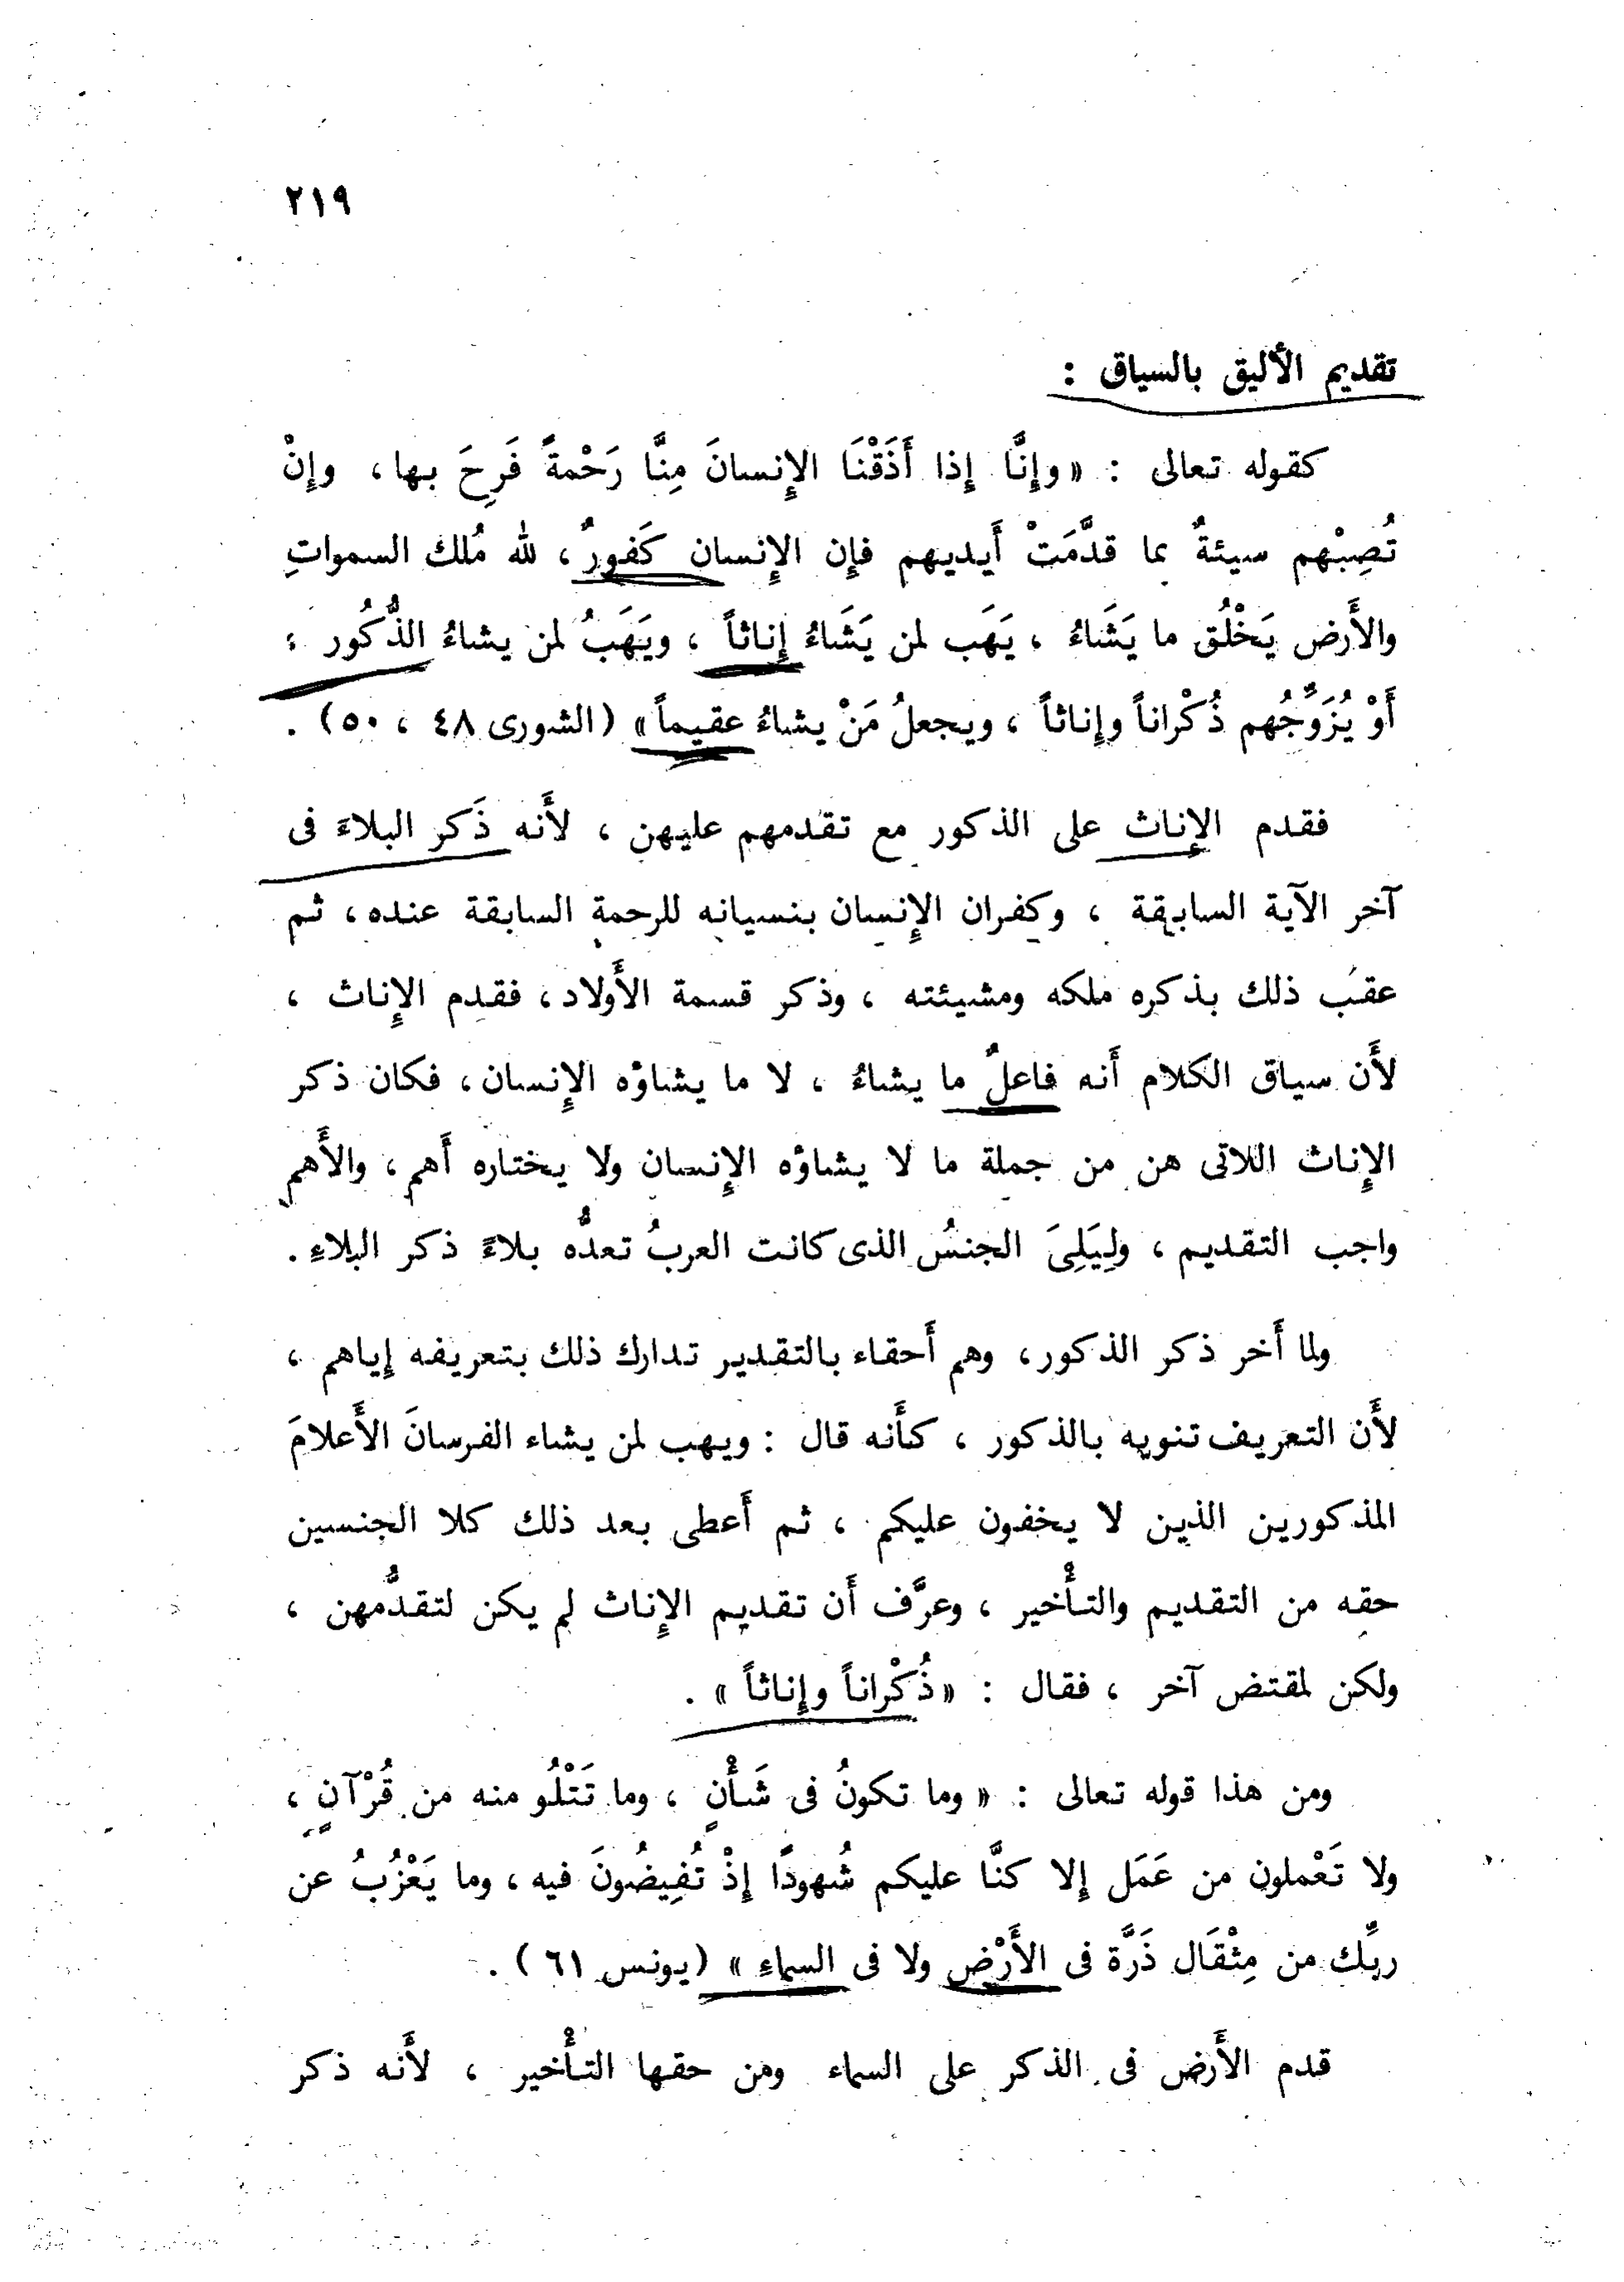 ٢١٩
تقديم الأليق بالسياق :
كقوله تعالى : « وإِنَّا إِذا أَذَقْنَا الإِنسانَ مِنَّا رَحْمةً فَرِحَ بها، وإِنْ
تُصِبْهم سيئةٌ بما قدَّمَتْ أَيديهم فإِن الإِنسان كَفورٌ، لله مُلك السمواتِ
والأَرض يَخْلُق ما يَشَاءُ ، يَهَب لمن يَشَاءُ إِناثاً ، ويَهَبُ لمن يشاءُ الذُّكُور ،
أَوْ يُزَوِّجُهم ذُكْراناً وإِناثاً ، ويجعلُ مَنْ يشاءُ عقيماً » (الشورى ٤٨ ، ٥٠) .
فقدم الإِناث على الذكور مع تقدمهم عليهن ، لأَنه ذَكر البلاءَ فى
آخر الآية السابقة ، وكفران الإِنسان بنسيانه للرحمة السابقة عنده، ثم
عقب ذلك بذكره ملكه ومشيئته ، وذكر قسمة الأَولاد، فقدم الإِناث ،
لأَن سياق الكلام أَنه فاعلٌ ما يشاءُ ، لا ما يشاؤه الإِنسان، فكان ذكر
الإِناث اللاتى هن من جملة ما لا يشاؤه الإِنسان ولا يختاره أَهم، والأَهم
واجب التقديم، ولِيَلِىَ الجنسُ الذى كانت العربُ تعدُّه بلاءً ذكر البلاءِ.
ولما أَخر ذكر الذكور، وهم أَحقاء بالتقدير تدارك ذلك بتعريفه إِياهم ،
لأَن التعريف تنويه بالذكور ، كأَنه قال : ويهب لمن يشاء الفرسانَ الأَعلامَ
المذكورين الذين لا يخفون عليكم ، ثم أَعطى بعد ذلك كلا الجنسين
حقه من التقديم والتأْخير ، وعرَّف أَن تقديم الإِناث لم يكن لتقدُّمهن ،
ولكن لمقتض آخر ، فقال : « ذُكْراناً وإِناثاً » .
ومن هذا قوله تعالى : « وما تكونُ فى شَأْنٍ ، وما تَتْلُو منه من قُرْآنٍ ،
ولا تَعْملون من عَمَل إِلا كنَّا عليكم شُهودًا إِذْ تُفِيضُونَ فيه، وما يَعْزُبُ عن
ربِّك من مِثْقَال ذَرَّة فى الأَرْضِ ولا فى السماءِ » (يونس ٦١) .
قدم الأَرض فى الذكر على السماء ومن حقها التأْخير ، لأَنه ذكر